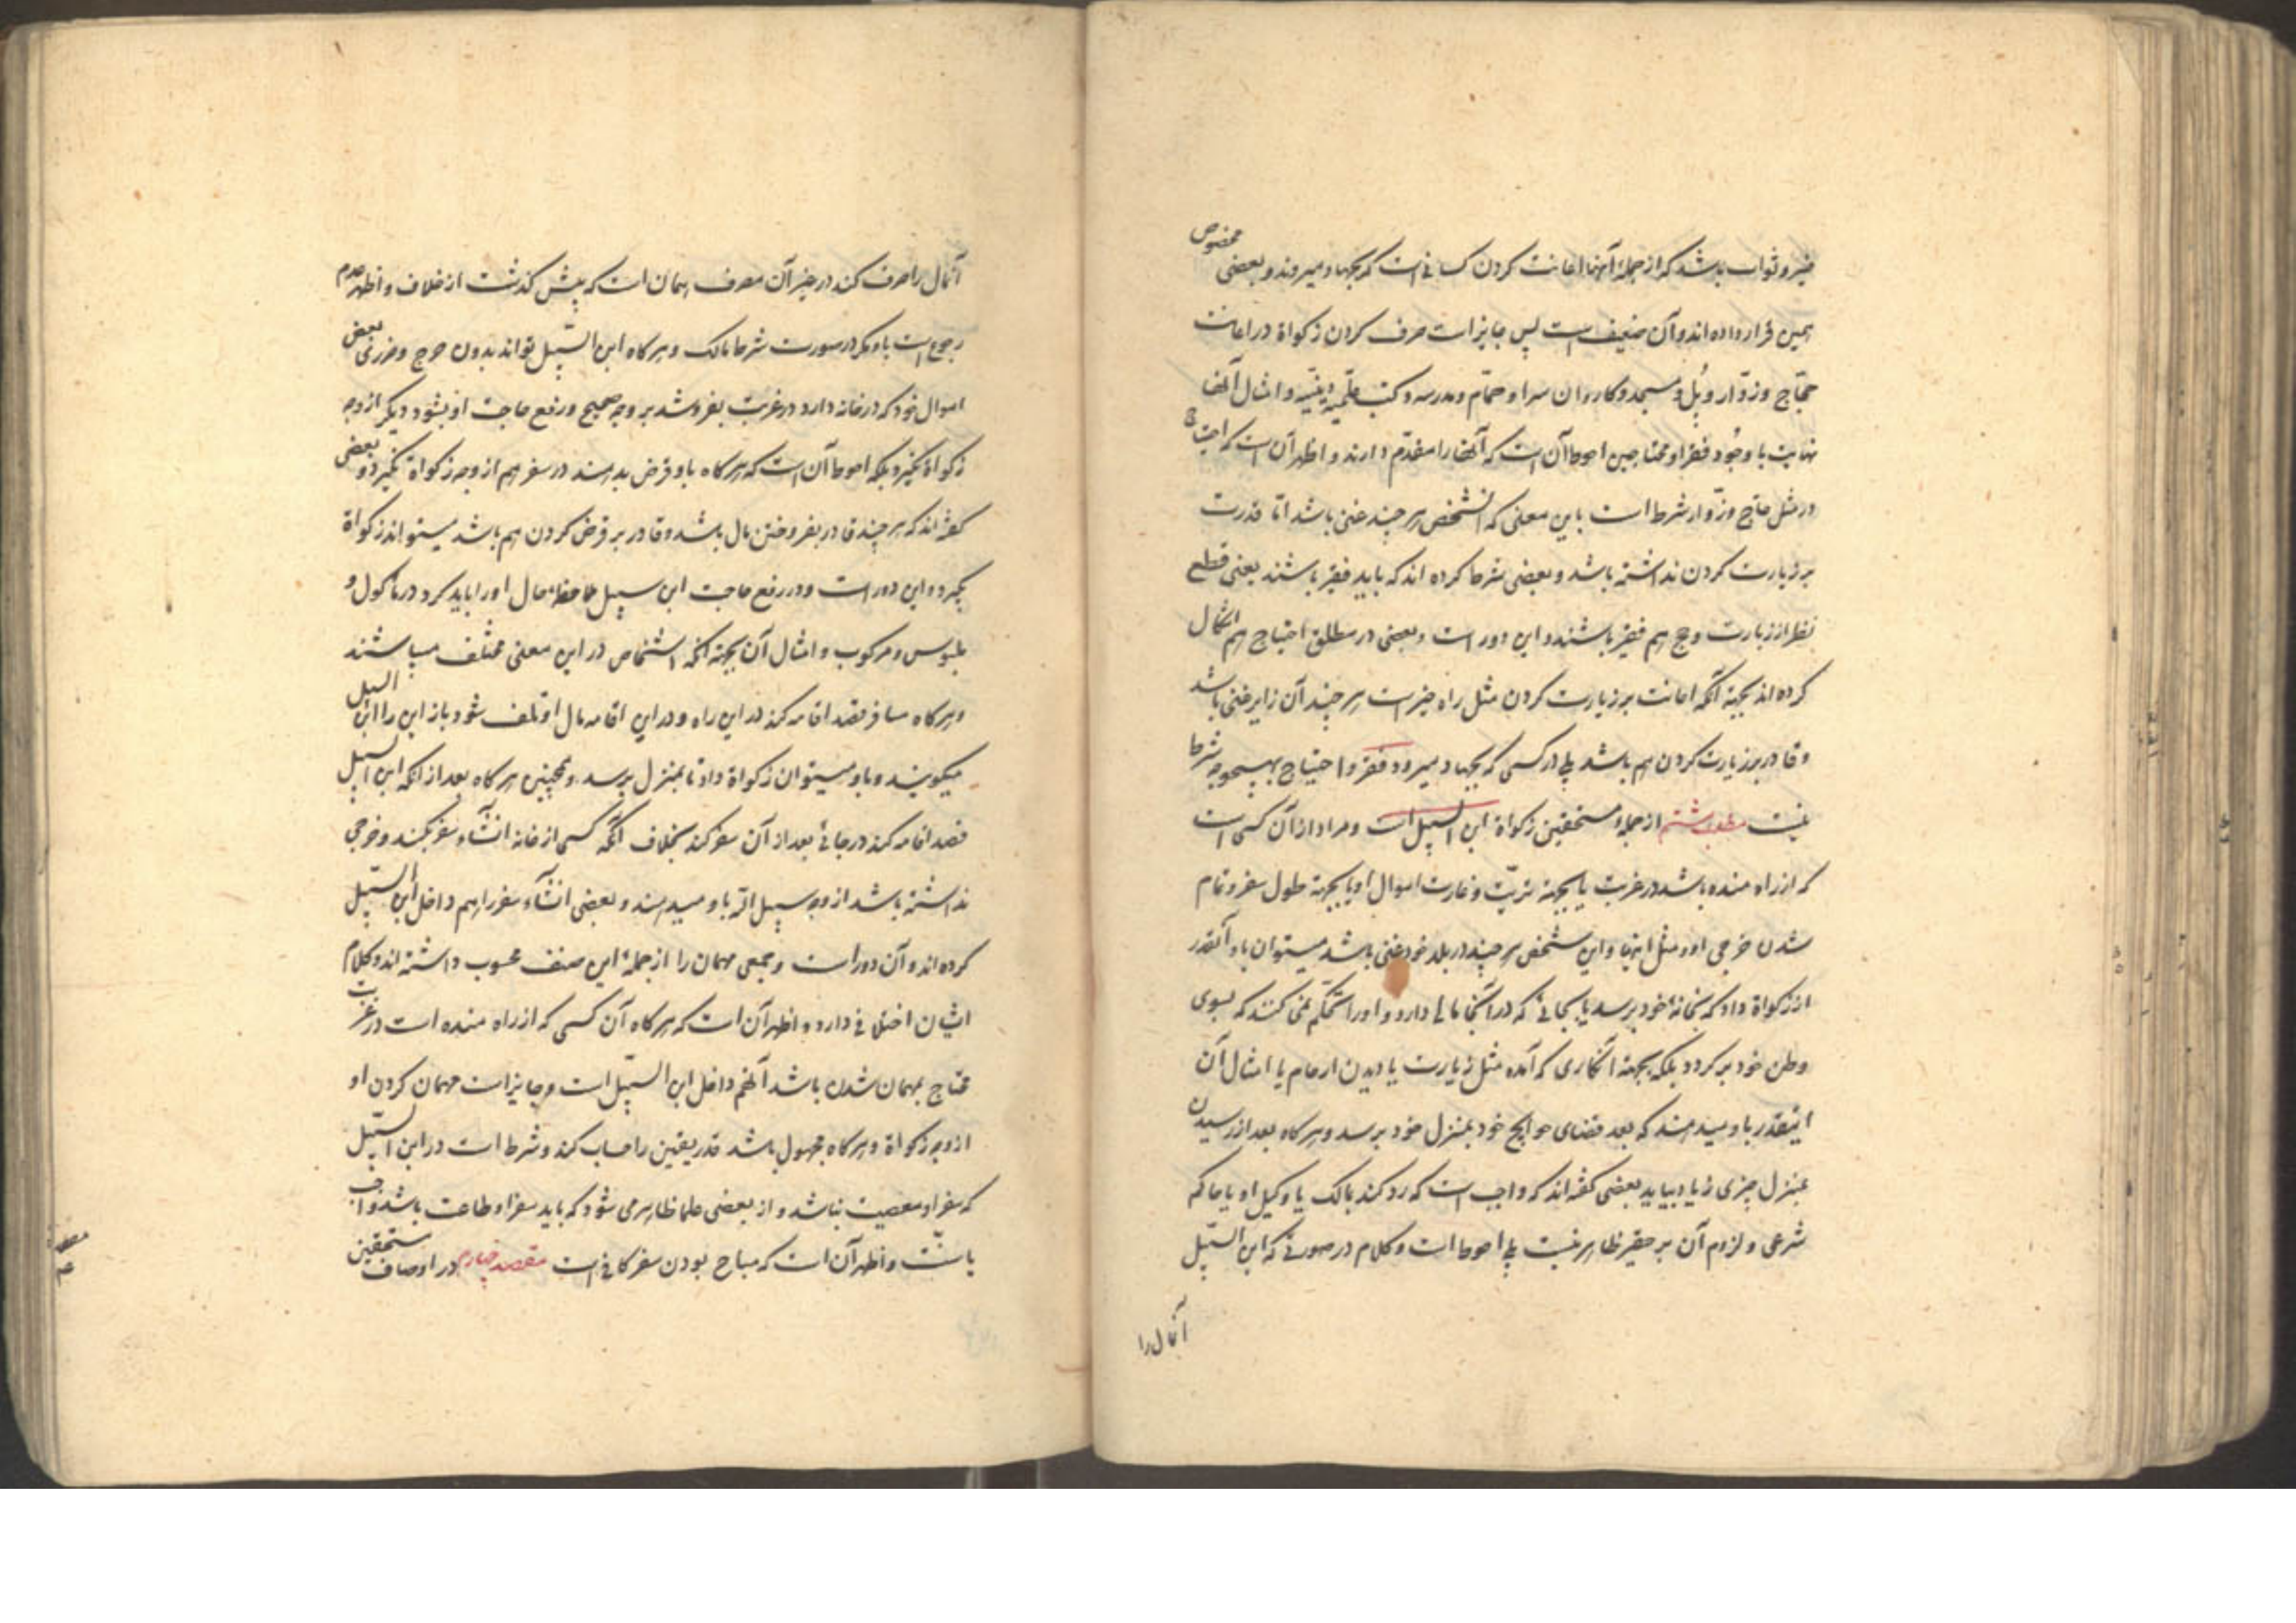 خیر و ثواب باشد که از جملهٔ آنها اعانت کردن کسانی است که بجهاد میروند و بعضی مخصوص
همین قرار داده اند و آن ضعیف است پس جایز است صرف کردن زکواة در اعانت
حجّاج و زوّار و پُل و مسجد و کاروان سرا و حمّام و مدرسه و کتب علمیّه دینیّه و امثال آنها
نهایت با وجُود فقرا و محتاجین احوط آن است که آنها را مقدّم دارند و اظهر آن است که احتیاج
در مثل حاج و زوّار شرط است باین معنی که آنشخص هر چند غنی باشد امّا قدرت
بر زیارت کردن نداشته باشد و بعضی شرط کرده اند که باید فقیر باشند یعنی قطع
نظر از زیارت و حج هم فقیر باشند و این دور است و بعضی در مطلق احتیاج هم اشکال
کرده اند بجهة آنکه اعانت بر زیارت کردن مثل راه خیر است هر چند آن زایر غنی باشد
و قادر بر زیارت کردن هم باشد بلی در کسی که بجهاد میرود فقر و احتیاج بهیچوجه شرط
نیست مطلب هشتم از جملهٔ مستحقین زکواة ابن السبیل است و مراد از آن کسی است
که از راه مانده باشد در غربت یا بجهة و غارت اموال او یا بجهة طول سفر و تمام
شدن خرجی او و مثل اینها و این شخص هر چند در بلد خود غنی باشد میتوان باو آنقدر
از زکواة داد که بخانهٔ خود برسد یا بجائی که در آنجا مالی دارد و او را نمی کنند که بسوی
وطن خود برگردد بلکه بجهة آنکاری که آمده مثل زیارت یا دیدن ارحام یا امثال آن
اینقدر باو میدهند که بعد قضای حوایج خود بمنزل خود برسد و هرگاه بعد از رسیدن
بمنزل چیزی زیاد بیاید بعضی گفته اند که واجب است که رد کند بمالک یا وکیل او یا حاکم
شرعی و لزوم آن بر حقیر ظاهر نیست بلی احوط است و کلام در صورتی که ابن السّبیل
آنمال را
آنمال را صرف کند در غیر آن مصرف همان است که پیش گذشت از خلاف و اظهر عدم
رجوع است باو مگر در صورت شرط مالک و هرگاه ابن السّبیل تواند بدون حرج و ضرری بعض
اموال خود که در خانه دارد در غربت بفروشد بر وجه صحیح و رفع حاجت او بشود دیگر از وجه
زکواة نگیرد بلکه احوط آن است که هرگاه باو قرض بدهند در سفر هم از وجه زکواة نگیرد و بعضی
گفته اند که هر چند قادر بفروختن مال باشد و قادر بر قرض کردن هم باشد میتواند زکواة
بگیرد و این دور است و در رفع حاجت ابن سبیل ملاحظهٔ حال او را باید کرد در ماکول و
ملبوس و مرکوب و امثال آن بجهة آنکه اشخاص در این معنی مختلف میباشند
و هرگاه مسافر قصد اقامه کند در این راه و در این اقامه مال او تلف شود باز این را ابن السبیل
میگویند و باو میتوان زکواة داد تا بمنزل برسد و همچنین هرگاه بعد از آنکه ابن السبیل
قصد اقامه کند در جائی بعد از آن سفر کند بخلاف آنکه کسی از خانه انشآء سفر بکند و خرجی
نداشته باشد از وجه سبیل الله باو میدهند و بعضی انشآء سفر را هم داخل ابن السّبیل
کرده اند و آن دور است و جمعی مهمان را از جملهٔ این صنف محسوب داشته اند و کلام
ایشان اختلافی دارد و اظهر آن است که هرگاه آن کسی که از راه مانده است در غربت
محتاج بمهمان شدن باشد آنهم داخل ابن السّبیل است و جایز است مهمان کردن او
از وجه زکواة و هرگاه مجهول باشد قدر یقین را حساب کند و شرط است در ابن السّبیل
که سفر او معصیت نباشد و از بعضی علما ظاهر می شود که باید سفر او طاعت باشد واجب
یا سنّت و اظهر آن است که مباح بودن سفر کافی است مقصد چهارم در اوصاف مستحقین